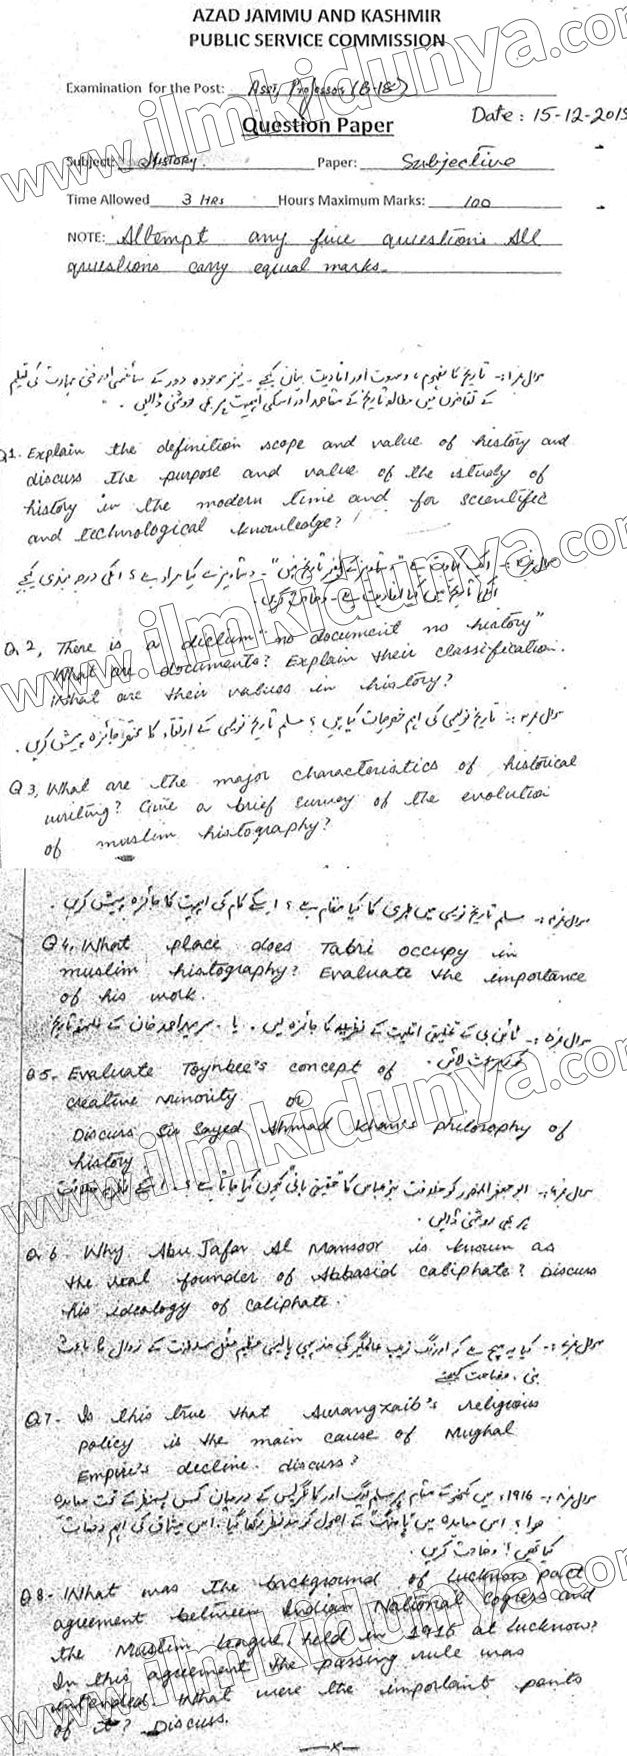 AZAD JAMMU AND KASHMIR
PUBLIC SERVICE COMMISSION
Examination for the Post: Asst, Professor (B-18)
Date: 15-12-2015
Question Paper
Subject: HISTORY. Paper: Subjective
Time Allowed 3 HRS Hours Maximum Marks: 100
NOTE: Attempt any five questions All
questions carry equal marks.
سوال نمبر ۱:۔ تاریخ کا مفہوم، وسعت اور افادیت بیان کیجیے ۔ نیز موجودہ دور کے سائنسی اور فنی مہارت کی تعلیم
کے تقاضوں میں مطالعہ تاریخ کے مقاصد اور اسکی اہمیت پر بھی روشنی ڈالیں ۔
Q1. Explain the definition scope and value of history and
discuss the purpose and value of the study of
history in the modern time and for scientific
and technological knowledge?
سوال نمبر ۲:۔ ایک کہاوت ہے " دستاویز کے بغیر تاریخ نہیں "۔ دستاویز سے کیا مراد ہے ؟ انکی درجہ بندی کیجیے
انکی تاریخ میں کیا افادیت ہے ۔ وضاحت کریں.
Q.2, There is a dictum "no document no history"
What are documents? Explain their classification.
What are their values in history?
سوال نمبر ۳:۔ تاریخ نویسی کی اہم خصوصیات کیا ہیں ؟ مسلم تاریخ نویسی کے ارتقاء کا مختصر جائزہ پیش کریں.
Q3, What are the major characteristics of historical
writing? Give a brief survey of the evolution
of muslim histography?
سوال نمبر ۴:۔ مسلم تاریخ نویسی میں طبری کا کیا مقام ہے ؟ اسکے کام کی اہمیت کا جائزہ پیش کریں.
Q4, What place does Tabri occupy in
muslim histography? Evaluate the importance
of his work.
سوال نمبر ۵:۔ ٹائن بی کے تخلیقی اقلیت کے نظریہ کا جائزہ لیں . یا . سر سید احمد خان کے فلسفہ تاریخ
کو زیر بحث لائیں.
Q.5- Evaluate Toynbee's concept of
creative minority or
Discuss Sir Sayed Ahmad Khan's philosophy of
history.
سوال نمبر ۶:۔ ابو جعفر المنصور کو خلافت بنو عباس کا حقیقی بانی کیوں کہا جاتا ہے ؟ . اسکے نظریہ خلافت
پر بھی روشنی ڈالیں.
Q.6 Why Abu Jafar Al Mansoor is known as
the real founder of Abbasid caliphate? Discuss
his idealogy of caliphate.
سوال نمبر ۷:۔ کیا یہ سچ ہے کہ اورنگ زیب عالمگیر کی مذہبی پالیسی عظیم مغل سلطنت کے زوال کا باعث
بنی . وضاحت کیجیے
Q7- Is this true that Aurangxaib's religious
policy is the main cause of Mughal
Empire's decline. discuss?
سوال نمبر ۸:۔ 1916ء میں لکھنو کے مقام پر مسلم لیگ اور کانگریس کے درمیان کس پس منظر کے تحت معاہدہ
ہوا ؟ اس معاہدہ میں پاسنگ کے اصول کو مدنظر رکھا گیا . اس میثاق کی اہم دفعات
کیا تھیں ؟ وضاحت کریں.
Q8- What was the background of Lucknow pact
agreement between Indian National Cogress and
the Muslim league, held in 1916 at Lucknow?
In this agreement the passing rule was
intended. What were the important points
of it? Discuss.
—x—
www.ilmkidunya.com
www.ilmkidunya.com
www.ilmkidunya.com
www.ilmkidunya.com
www.ilmkidunya.com